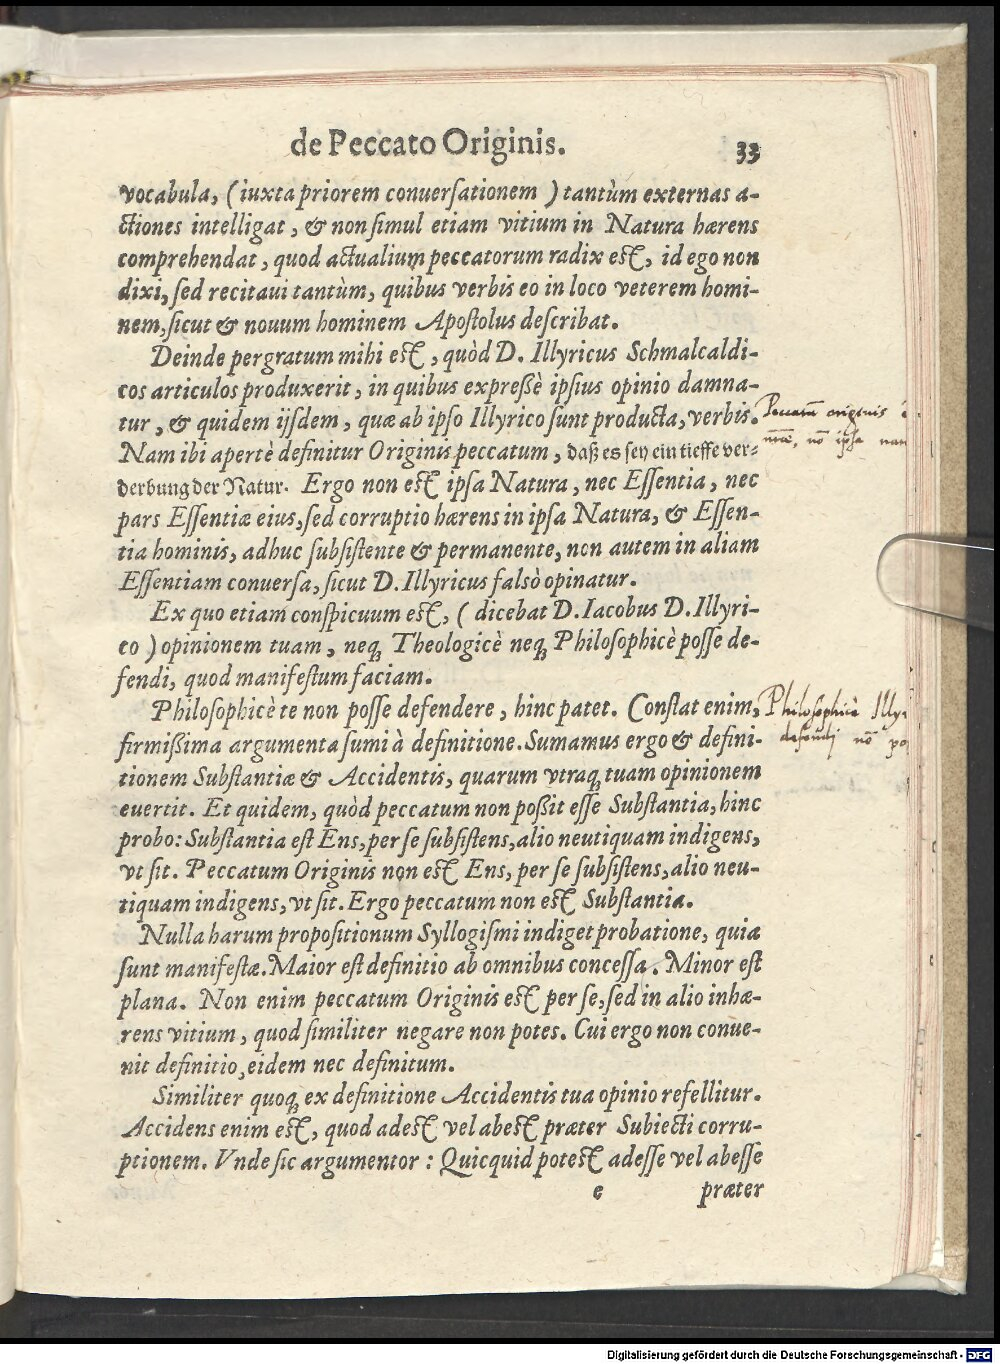 de Peccato Originis.
33
vocabula, (iuxta priorem conuerſationem) tantùm externas a-
ctiones intelligat, & non ſimul etiam vitium in Natura hærens
comprehendat, quod actualium peccatorum radix eſt, id ego non
dixi, ſed recitaui tantùm, quibus verbis eo in loco veterem homi-
nem, ſicut & nouum hominem Apoſtolus deſcribat.
Deinde pergratum mihi eſt, quòd D. Illyricus Schmalcaldi-
cos articulos produxerit, in quibus expreßè ipſius opinio damna-
tur, & quidem ijſdem, quæ ab ipſo Illyrico ſunt producta, verbis.
Nam ibi apertè definitur Originis peccatum, daß es ſey ein tieffe ver-
derbung der Natur. Ergo non eſt ipſa Natura, nec Eſſentia, nec
pars Eſſentiæ eius, ſed corruptio hærens in ipſa Natura, & Eſſen-
tia hominis, adhuc ſubſiſtente & permanente, non autem in aliam
Eſſentiam conuerſa, ſicut D. Illyricus falsò opinatur.
Ex quo etiam conſpicuum eſt, (dicebat D. Iacobus D. Illyri-
co) opinionem tuam, neq; Theologicè neq; Philoſophicè poſſe de-
fendi, quod manifeſtum faciam.
Philoſophicè te non poſſe defendere, hinc patet. Conſtat enim,
firmißima argumenta ſumi à definitione. Sumamus ergo & defini-
tionem Subſtantiæ & Accidentis, quarum vtraq; tuam opinionem
euertit. Et quidem, quòd peccatum non poßit eſſe Subſtantia, hinc
probo: Subſtantia eſt Ens, per ſe ſubſiſtens, alio neutiquam indigens,
vt ſit. Peccatum Originis non eſt Ens, per ſe ſubſiſtens, alio neu-
tiquam indigens, vt ſit. Ergo peccatum non eſt Subſtantia.
Nulla harum propoſitionum Syllogiſmi indiget probatione, quia
ſunt manifeſtæ. Maior eſt definitio ab omnibus conceſſa. Minor eſt
plana. Non enim peccatum Originis eſt per ſe, ſed in alio inhæ-
rens vitium, quod ſimiliter negare non potes. Cui ergo non conue-
nit definitio, eidem nec definitum.
Similiter quoq; ex definitione Accidentis tua opinio refellitur.
Accidens enim eſt, quod adeſt vel abeſt præter Subiecti corru-
ptionem. Vnde ſic argumentor: Quicquid poteſt adeſſe vel abeſſe
e præter
originis
nō ipſa
Philoſophicè Illy.
defendi nō
Digitalisierung gefördert durch die Deutsche Forschungsgemeinschaft - DFG